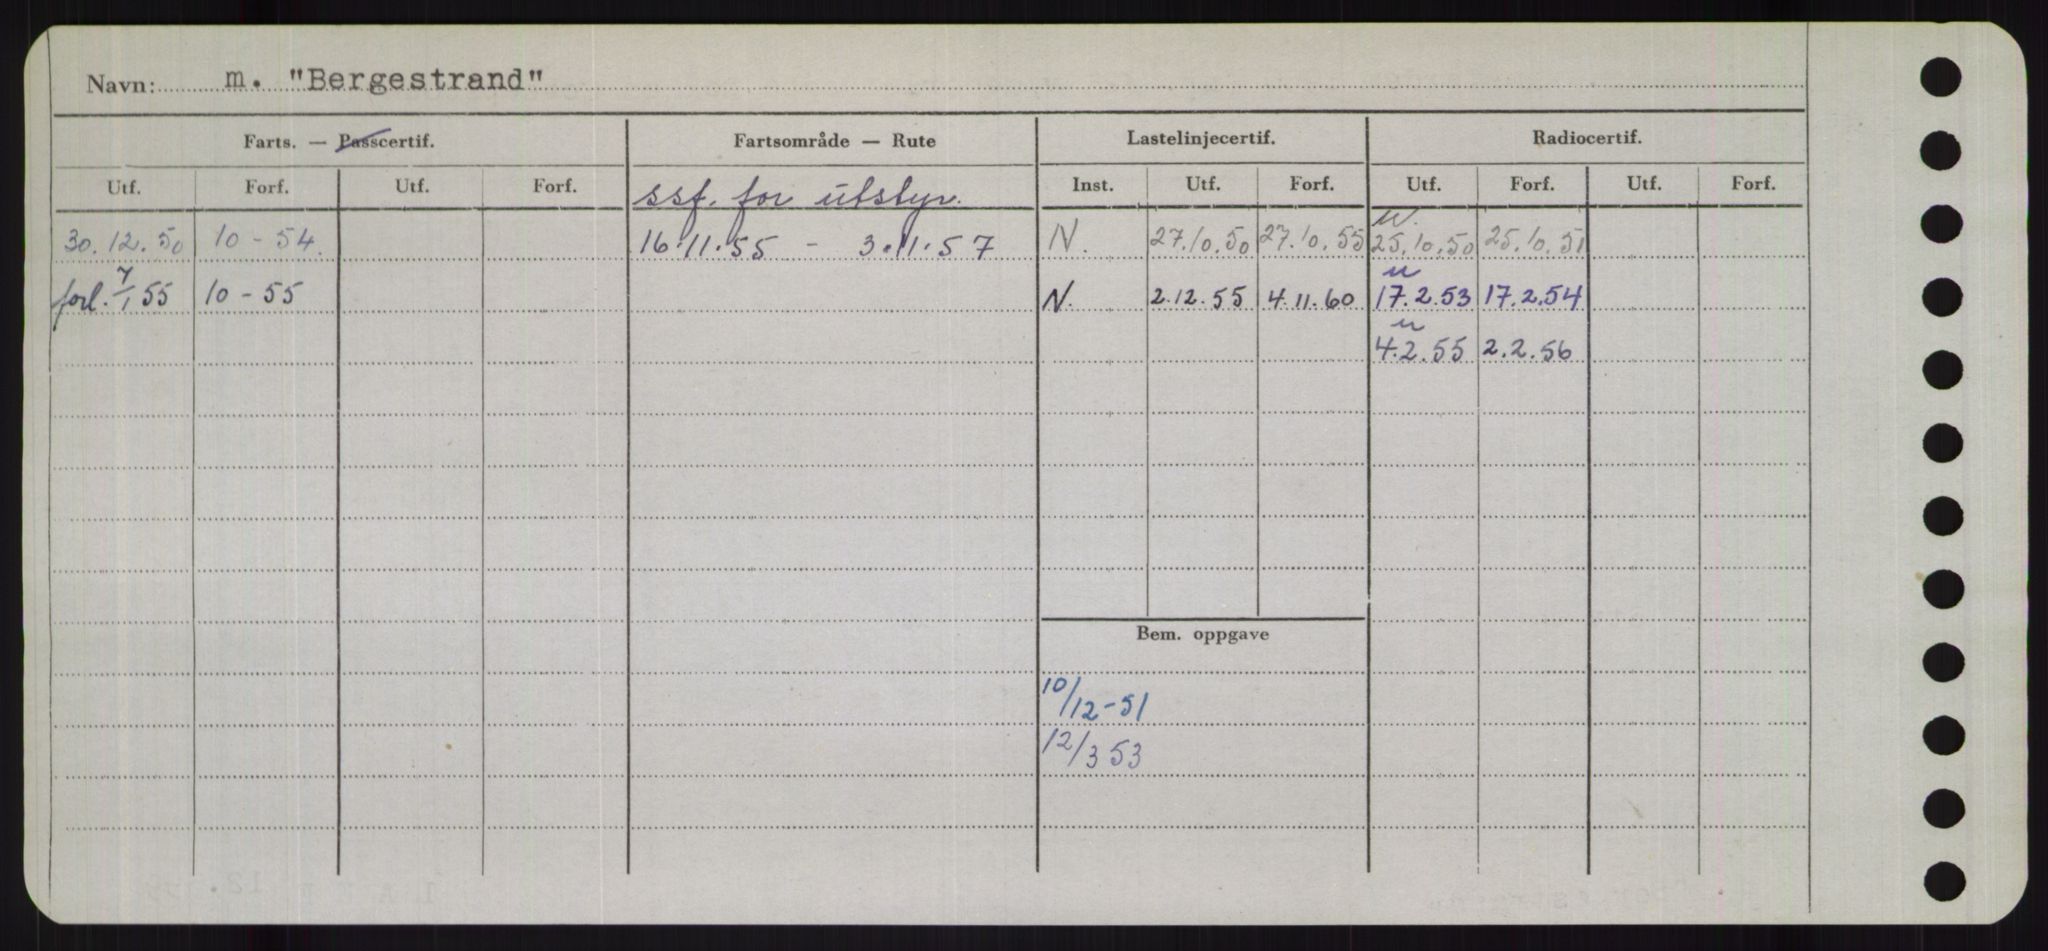 Navn: m. "Bergestrand"
Farts. — Passcertif. Fartsområde — Rute Lastelinjecertif. Radiocertif.
Utf. Forf. Utf. Forf. ssf. for utstyr. Inst. Utf. Forf. Utf. Forf. Utf. Forf.
u.
30.12.50 10-54. 16.11.55 - 3.11.57 N. 27.10.50 27.10.55 25.10.50 25.10.51
u
forl. 7/1 55 10-55 N. 2.12.55 4.11.60 17.2.53 17.2.54
u
4.2.55 2.2.56
Bem. oppgave
10/12-51
12/3 53